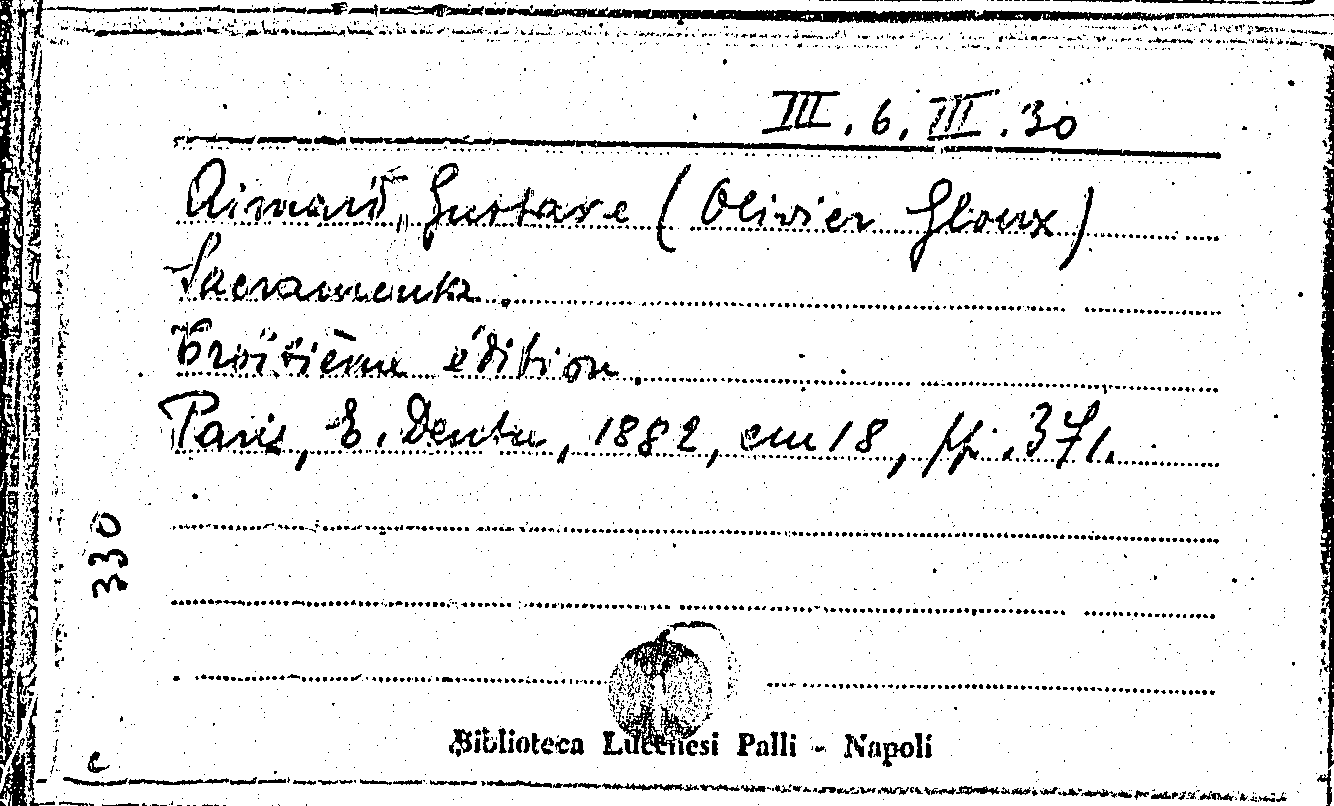 III. 6. III. 30
Aimard, Gustave (Olivier Gloux)
Sacramenta.
Troisième édition.
Paris, E. Dentu, 1882, cm 18, pp. 371.
330
Biblioteca Lucchesi Palli - Napoli
c